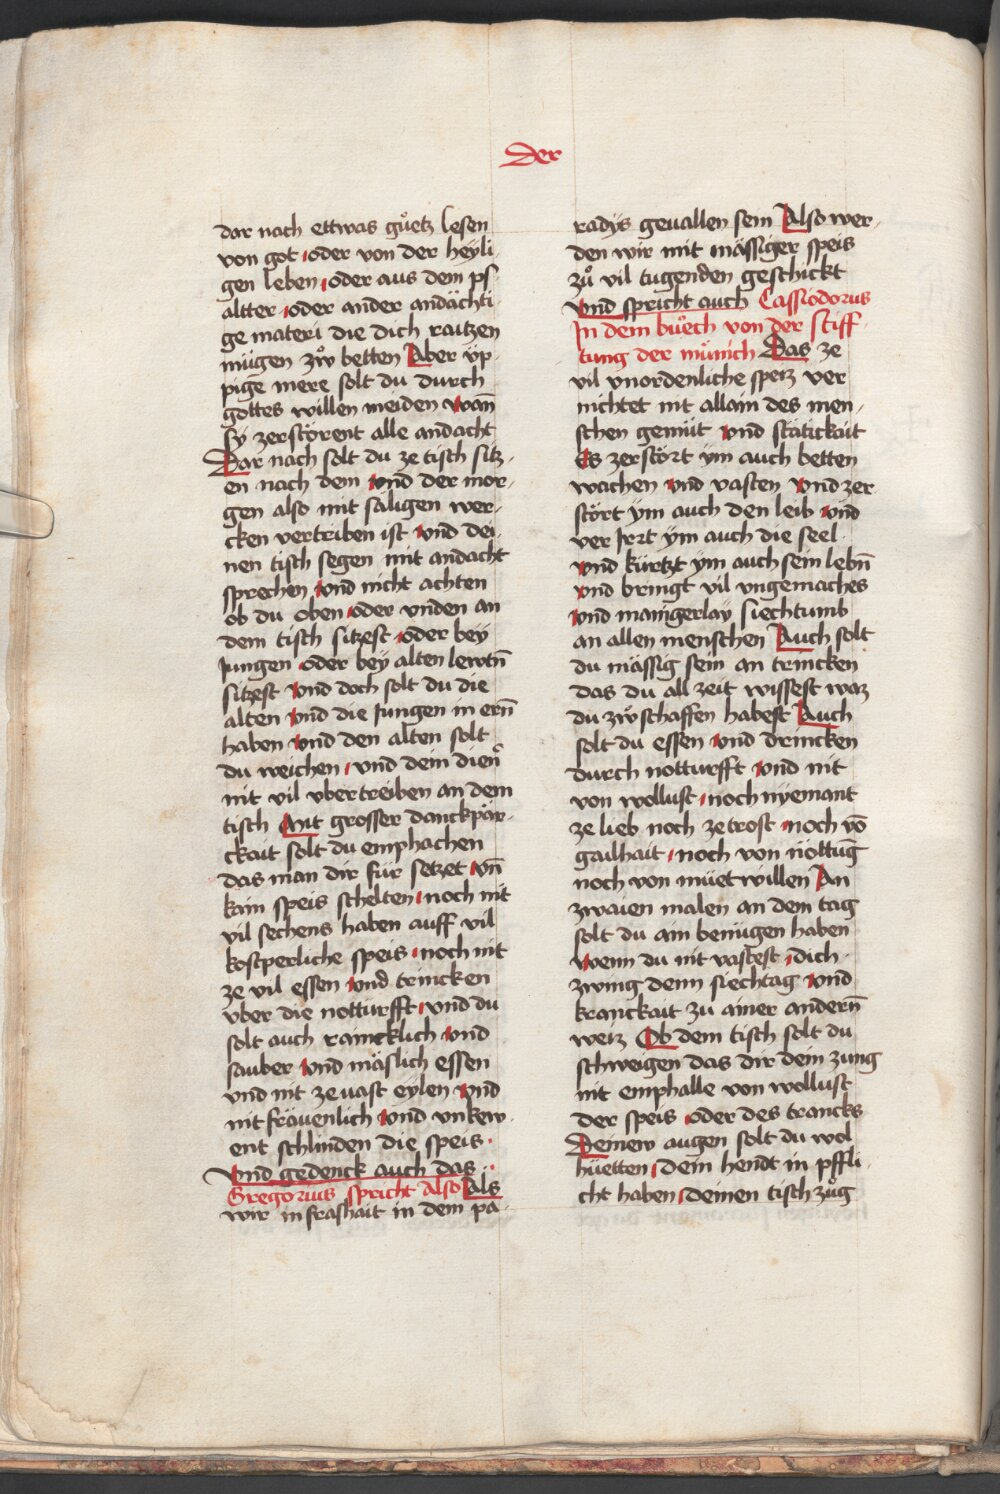 Der
dar nach ettwas gůetz lesen
von got oder von der heyli-
gen leben oder aus dem ps-
altter oder ander andächti-
ge materi die dich raitzen
mügen zẘ betten Aber üp-
pige mere solt du durch
gottes willen meiden wan̄
sy zerstörent alle andacht
Dar nach solt du ze tisch sitz-
en nach dem vnd der mor-
gen also mit säligen wer-
cken vertriben ist vnd dei-
nen tisch segen mit andacht
sprechen vnd nicht achten
ob du oben oder vnden an
dem tisch sitzest oder bey
Jungen oder bey alten lewtn̄
sitzest vnd doch solt du die
alten vnd die Jungen in ern̄
haben vnd den alten solt
du weichen vnd dein dien
nit vil vbertreiben an dem
tisch Mit grosser danckpär-
ckait solt du emphachen
das man dir für setzet vn̄
kain speis schelten noch nit
vil sechens haben auff vil
kostperliche speis noch nit
ze vil essen vnd trincken
vber die notturfft vnd du
solt auch raincklich vnd
sauber vnd mäslich essen
vnd nit ze vast eylen vnd
nit fräuenlich vnd vnkew-
ent schlinden die speis
vnd gedenck auch das
Gregorius spricht Also Als
wir in frashait in dem pa-
radÿs geuallen sein Also wer-
den wir mit mässiger speis
zů vil tugenden geschickt
vnd spricht auch Cassiodorus
In dem bůech von der Stiff-
tung der münich Das ze
vil vnordenliche speiz ver
nichtet nit allain des men-
schen gemüt vnd stätickait
Es zerstört ym auch betten
wachen vnd vasten vnd zer
stört ym auch den leib vnd
ver Irrt ym auch die seel
vnd kürtzt ym auch sein lebn̄
vnd bringt vil vngemaches
vnd maingerlay siechtumb
an allen menschen Auch solt
du mässig sein an trincken
das du all zeit wissest waz
du zẘ schaffen habest Auch
solt du essen vnd drincken
durch notturfft vnd nit
von wollust noch nyemant
ze lieb noch ze trost noch vō
gailhait noch von nöttuḡ
noch von müetwillen An
zwaien malen an dem tag
solt du ain benügen haben
wenn du nit vastest dich
zwing denn siechtag vnd
kranckait zu ainer andern̄
weiz Ob dem tisch solt du
schweigen das dir dein zung
nit emphalle von wollust
der speis oder des trancks
Deinew augen solt du wol
hüetten dein hendt in pffli-
cht haben deinen tisch zůg